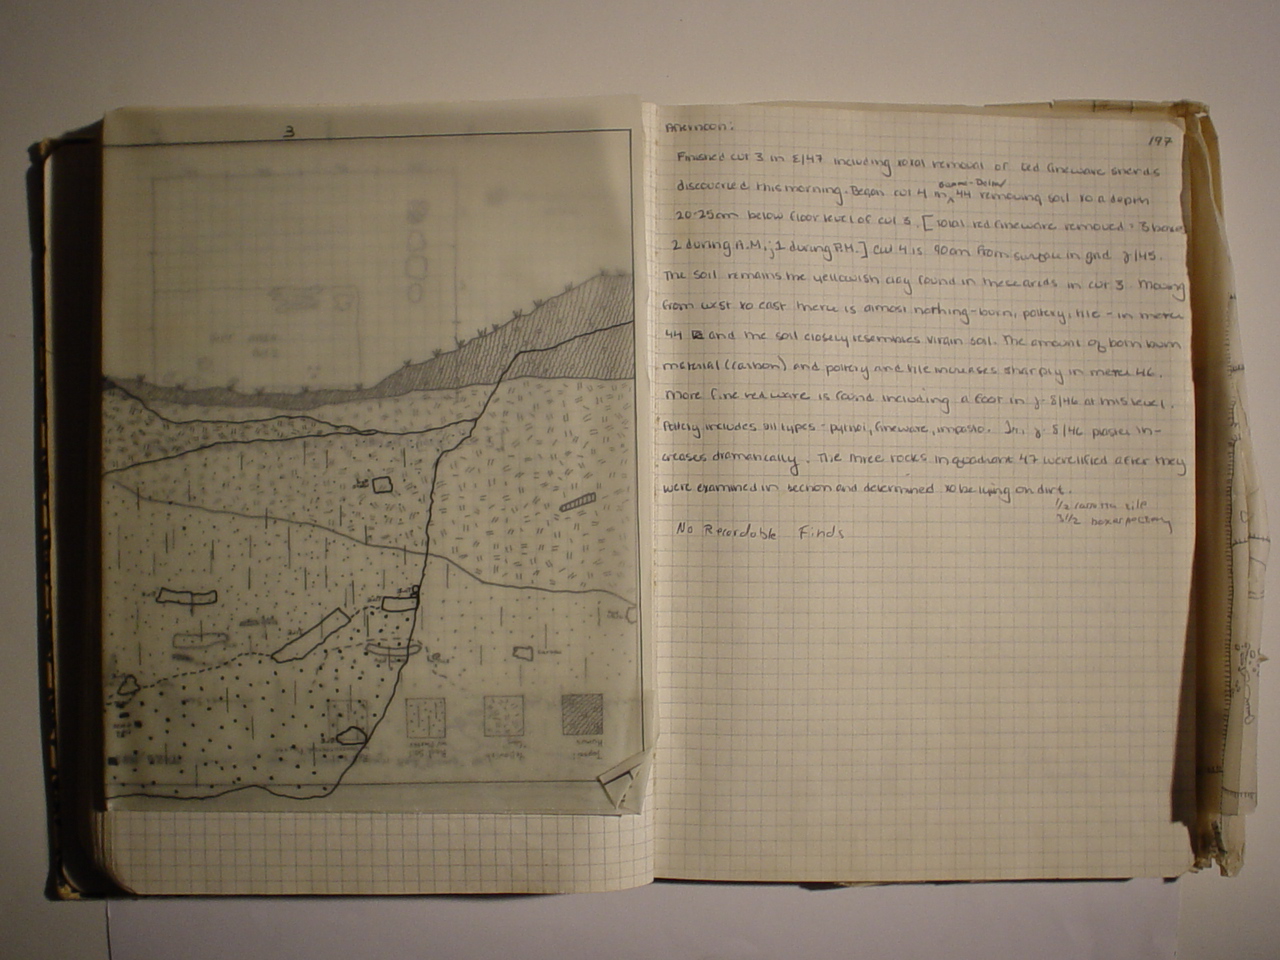 3
Afternoon:
197
Finished cut 3 in ε/47 including total removal of red fineware sherds
discovered this morning. Began cut 4 in 44 removing soil to a depth
20-25cm below floor level of cut 3. [Total red fineware removed: 3 boxes
2 during A.M.; 1 during P.M.] Cut 4 is 90cm from surface in grid γ/45.
The soil remains the yellowish clay found in these grids in cut 3. Moving
from west to east there is almost nothing - burn, pottery, tile - in meter
44 and the soil closely resembles virgin soil. The amount of burn
material (carbon) and pottery and tile increases sharply in meter 46.
More fine red ware is found including a foot in γ-δ/46 at this level.
Pottery includes all types - pythoi, fineware, impasto. In γ-δ/46 plaster in-
creases dramatically. The three rocks in quadrant 47 were lifted after they
were examined in section and determined to be lying on dirt.
1/2 tile
3 1/2 boxes pottery
No Recordable Finds